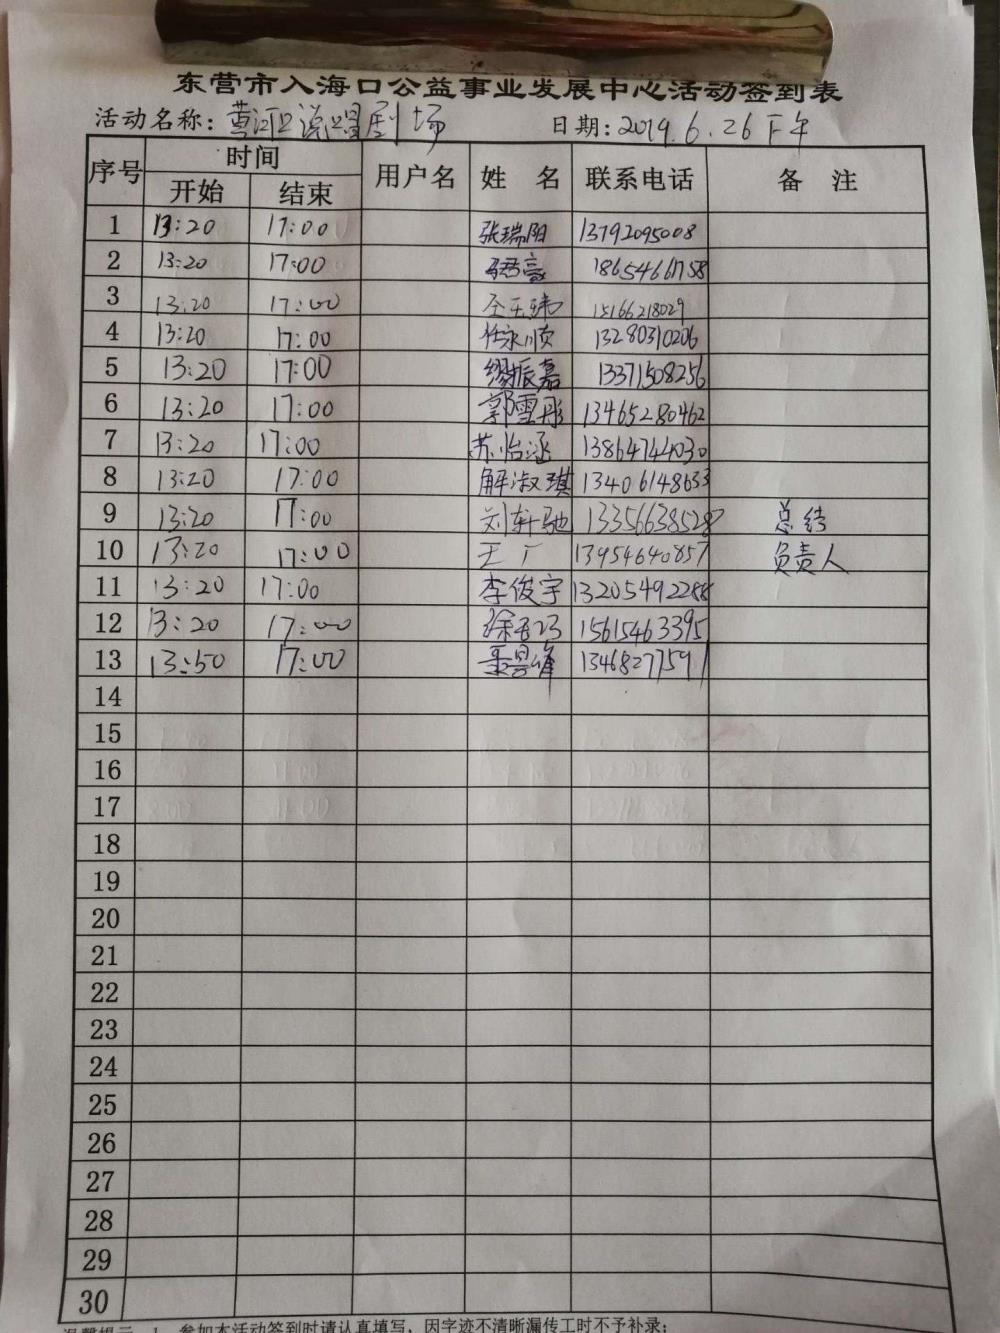 东营市入海口公益事业发展中心活动签到表
活动名称：黄河口说唱剧场 日期：2019.6.26下午
序号 时间 用户名 姓 名 联系电话 备 注
开始 结束
1 13:20 17:00 张瑞阳 13792095008
2 13:20 17:00 18654661758
3 13:20 17:00 15166218029
4 13:20 17:00 任永顺 13280310206
5 13:20 17:00 缪振嘉 13371508256
6 13:20 17:00 郭雪彤 13465280462
7 13:20 17:00 苏怡涵 13864744030
8 13:20 17:00 解淑琪 13406148633
9 13:20 17:00 刘轩驰 13356638528 总结
10 13:20 17:00 王广 13954640857 负责人
11 13:20 17:00 李俊宇 13205492288
12 13:20 17:00 15615463395
13 13:50 17:00 13468277591
14
15
16
17
18
19
20
21
22
23
24
25
26
27
28
29
30
温馨提示 1、参加本活动签到时请认真填写，因字迹不清晰漏传工时不予补录；